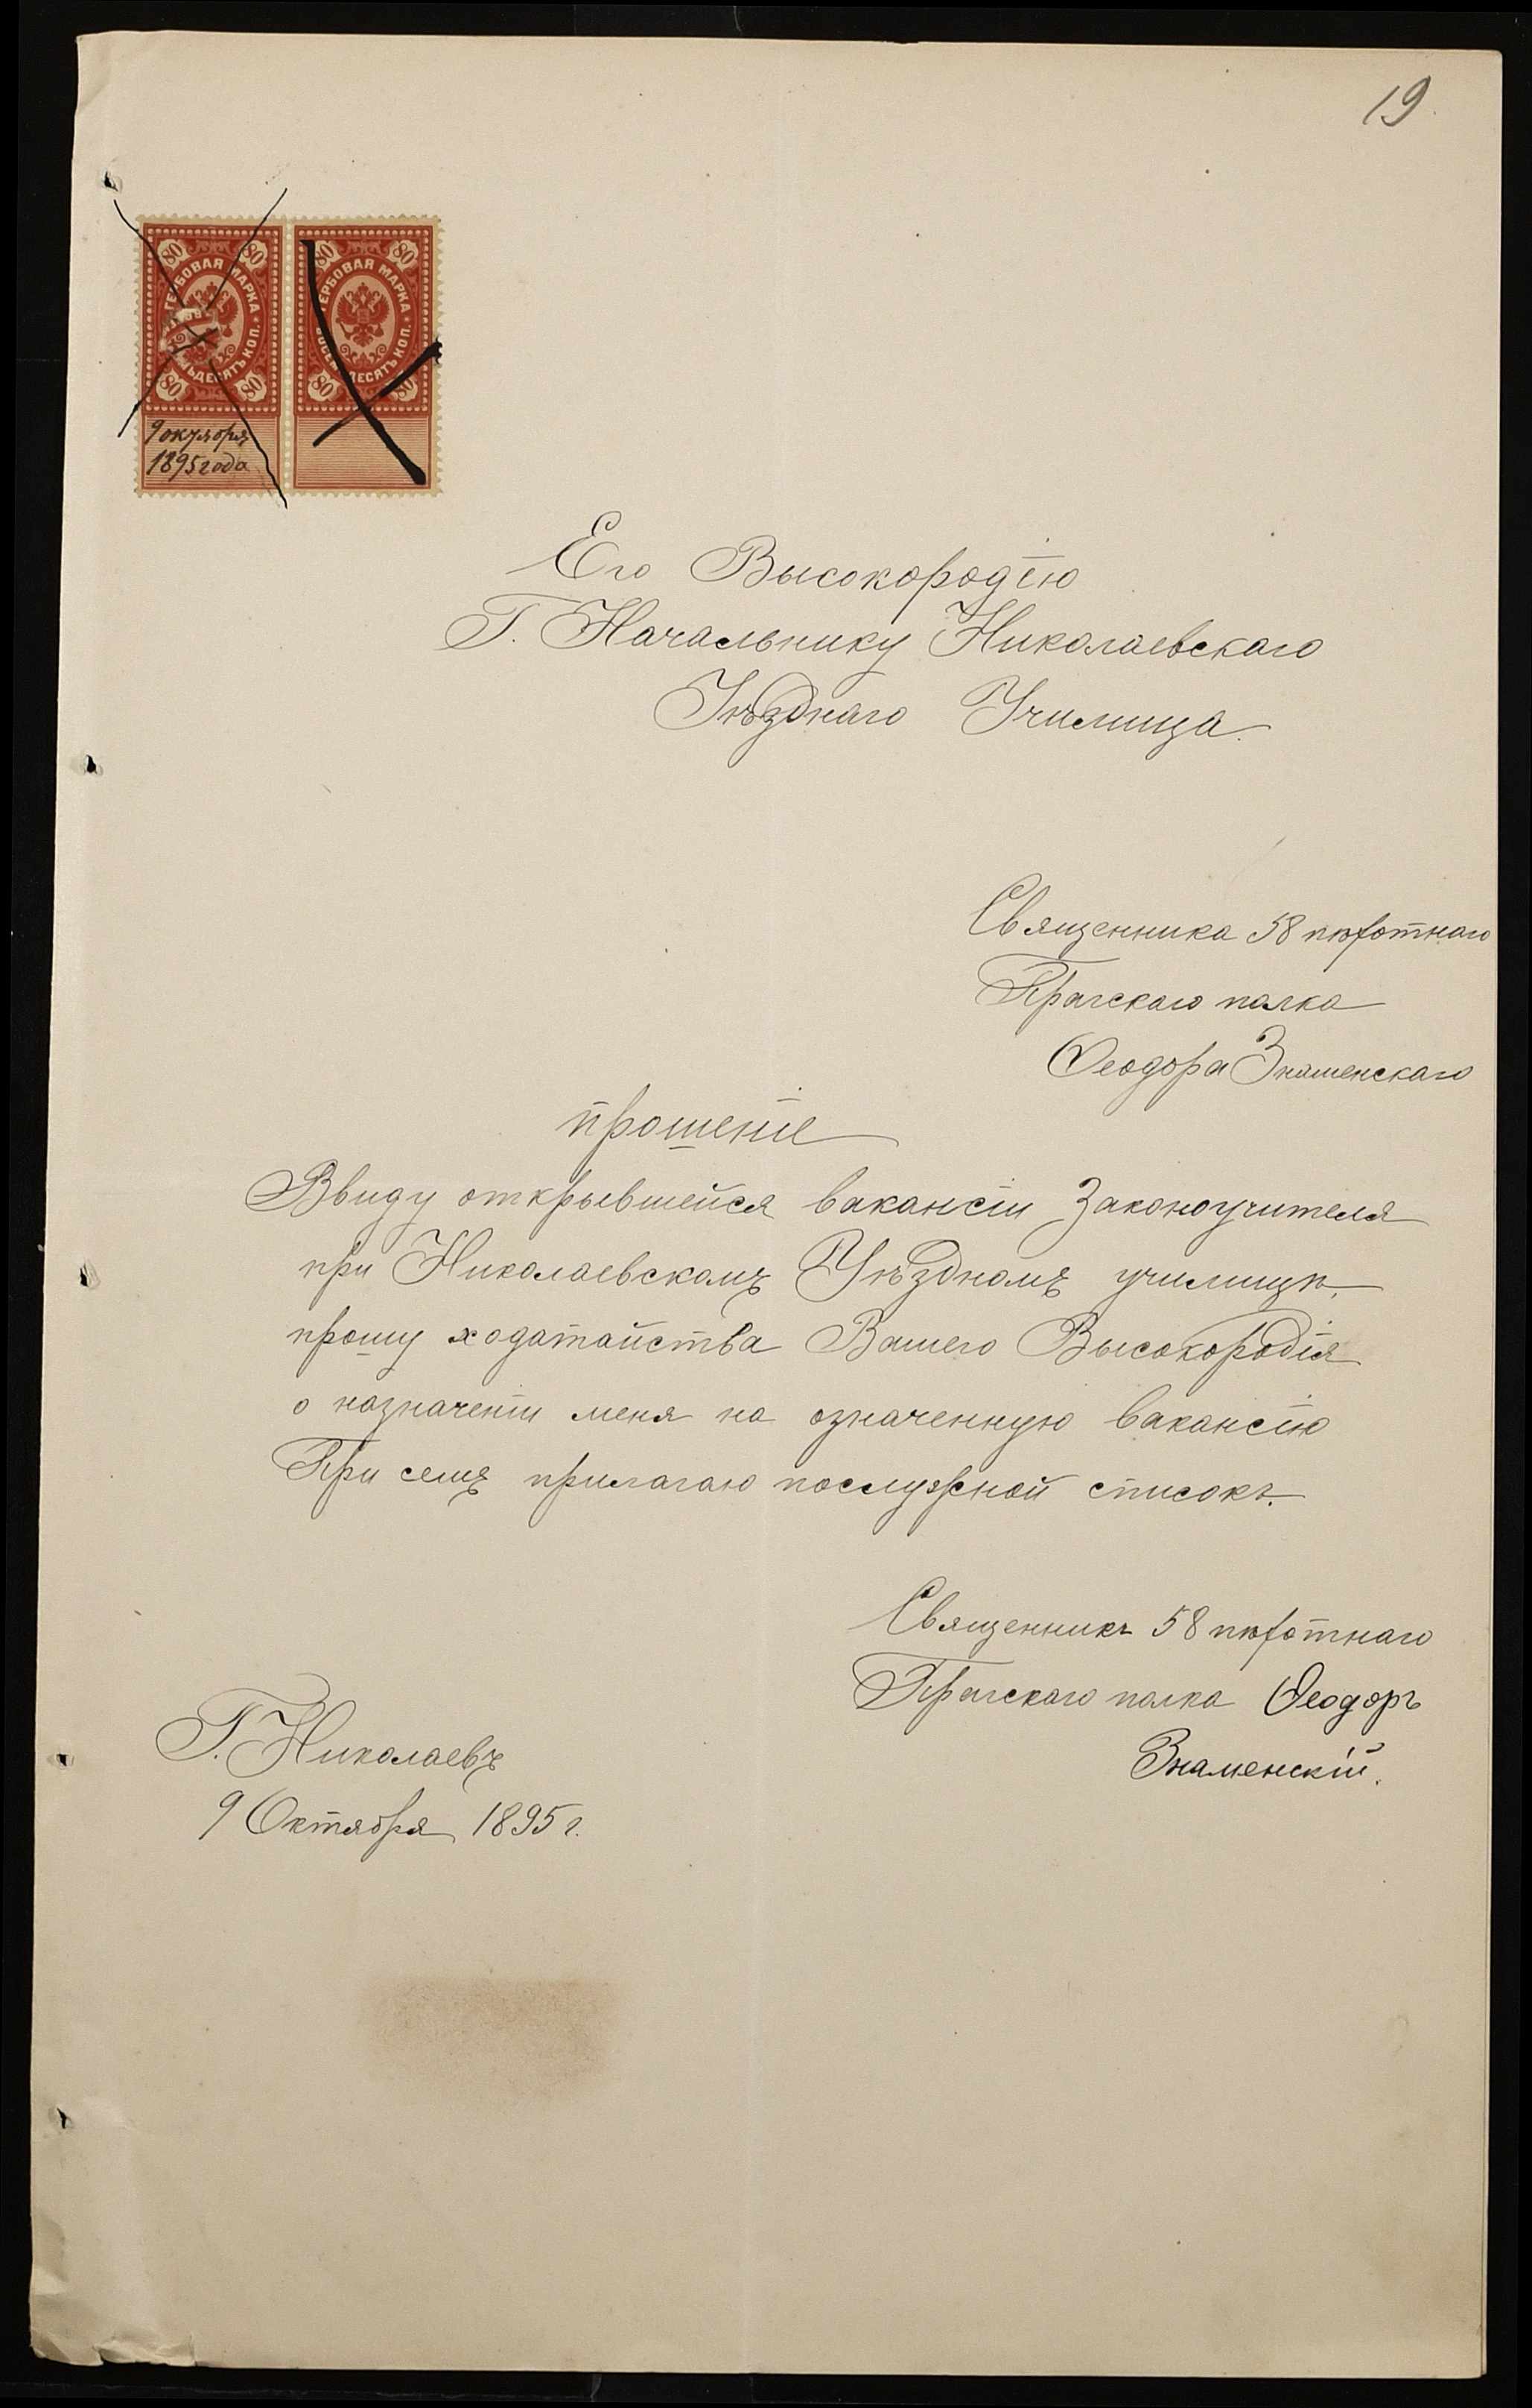 19
80 80 80 80
ГЕРБОВАЯ МАРКА ГЕРБОВАЯ МАРКА
ВОСЕМЬДЕСЯТЪ КОП. ВОСЕМЬДЕСЯТЪ КОП.
80 80 80 80
9 октября
1895 года
Его Высокородію
Г. Начальнику Николаевскаго
Уѣзднаго Училища.
Священника 58 пѣхотнаго
Прагскаго полка
Ѳеодора Знаменскаго
прошеніе
Ввиду открывшейся вакансіи Законоучителя
при Николаевскомъ Уѣздномъ училищѣ,
прошу ходатайства Вашего Высокородія
о назначеніи меня на означенную вакансію
При семъ прилагаю послужной списокъ.
Священникъ 58 пѣхотнаго
Прагскаго полка Ѳеодоръ
Знаменскій.
Г. Николаевъ
9 Октября 1895 г.